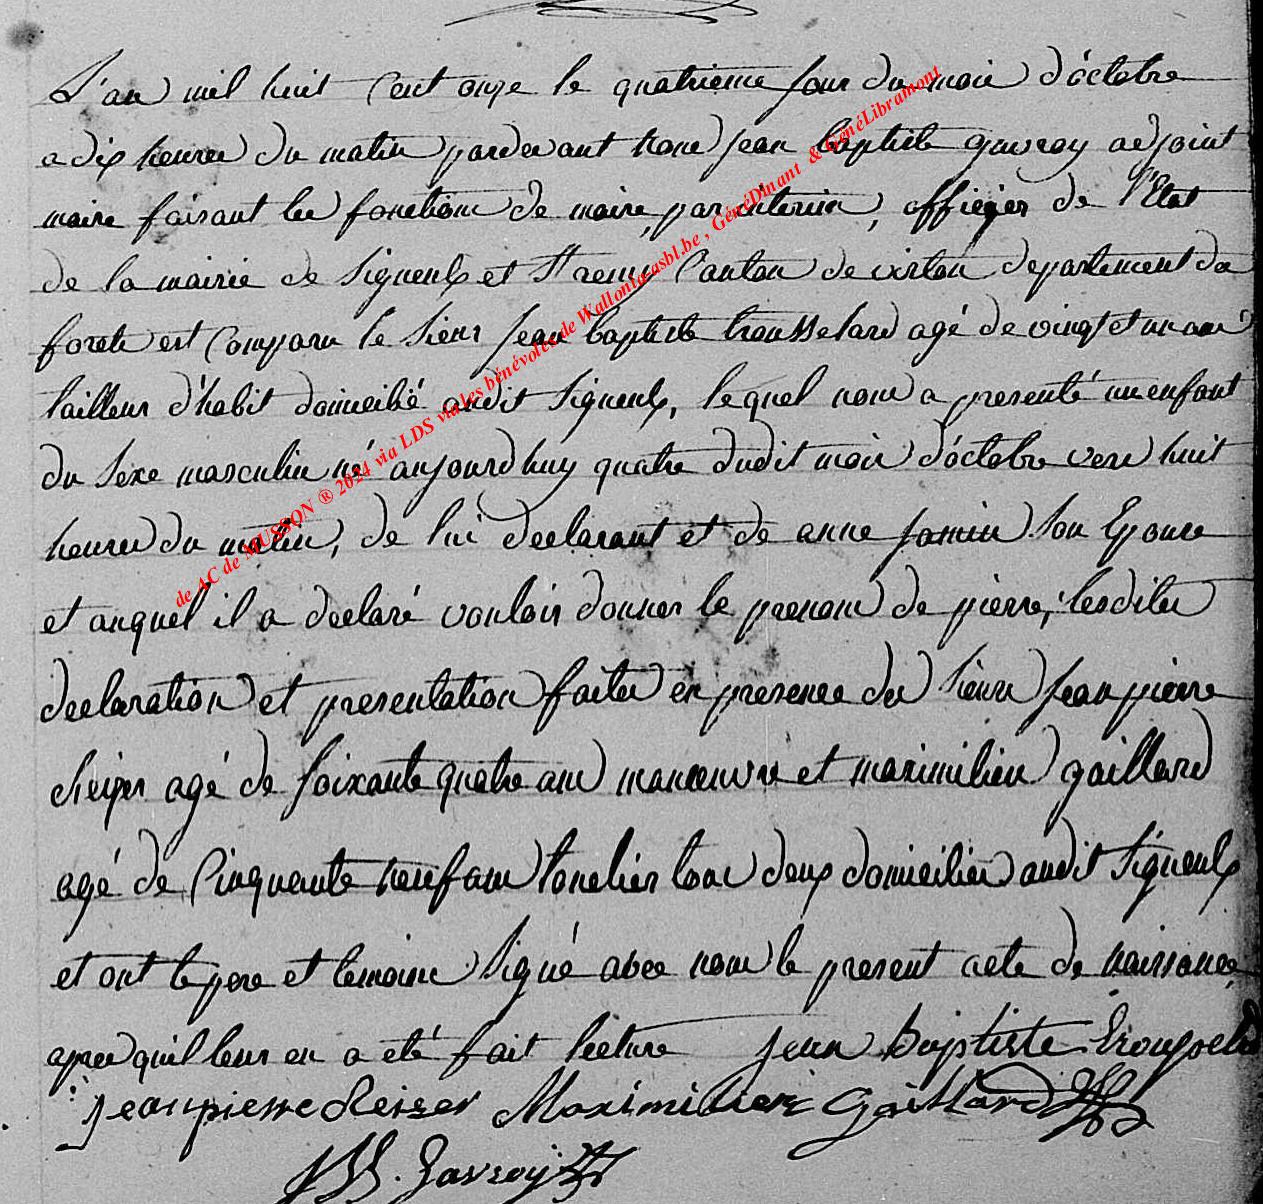 L'an mil huit Cent onze le quatrieme jour du mois d'octobre
a dix heures du matin pardevant nous jean baptiste gavroy adjoint
maire faisant les fonctions de maire, par interim, officier de l'Etat
de la mairie de Signeulx et St remy Canton de virton departement des
forets est Comparu le Sieur Jean baptiste trousselard agé de vingt et un ans
tailleur d'habit domicilié audit Signeulx, lequel nous a presenté un enfant
du Sexe masculin né aujourdhuy quatre dudit mois d'octobre vers huit
heures du matin, de lui declarant et de anne jamin Son Epouse
et auquel il a declaré vouloir donner le prenom de pierre, lesdites
declaration et presentation faites en presence des Sieurs Jean pierre
agé de Soixante quatre ans manoeuvre et maximilien gaillard
agé de Cinquante neuf ans tonelier tous deux domiciliés audit Signeulx
et ont le pere et temoins Signé avec nous le present acte de naissance
apres quil leur en a eté fait lecture jean Baptiste
Jean pierre Maximilien Gaillard
JB. Gavroy
de AC de MUSSON ® 2024 via LDS via les bénévoles de Wallonia-asbl.be , GénéDinant & GénéLibramont